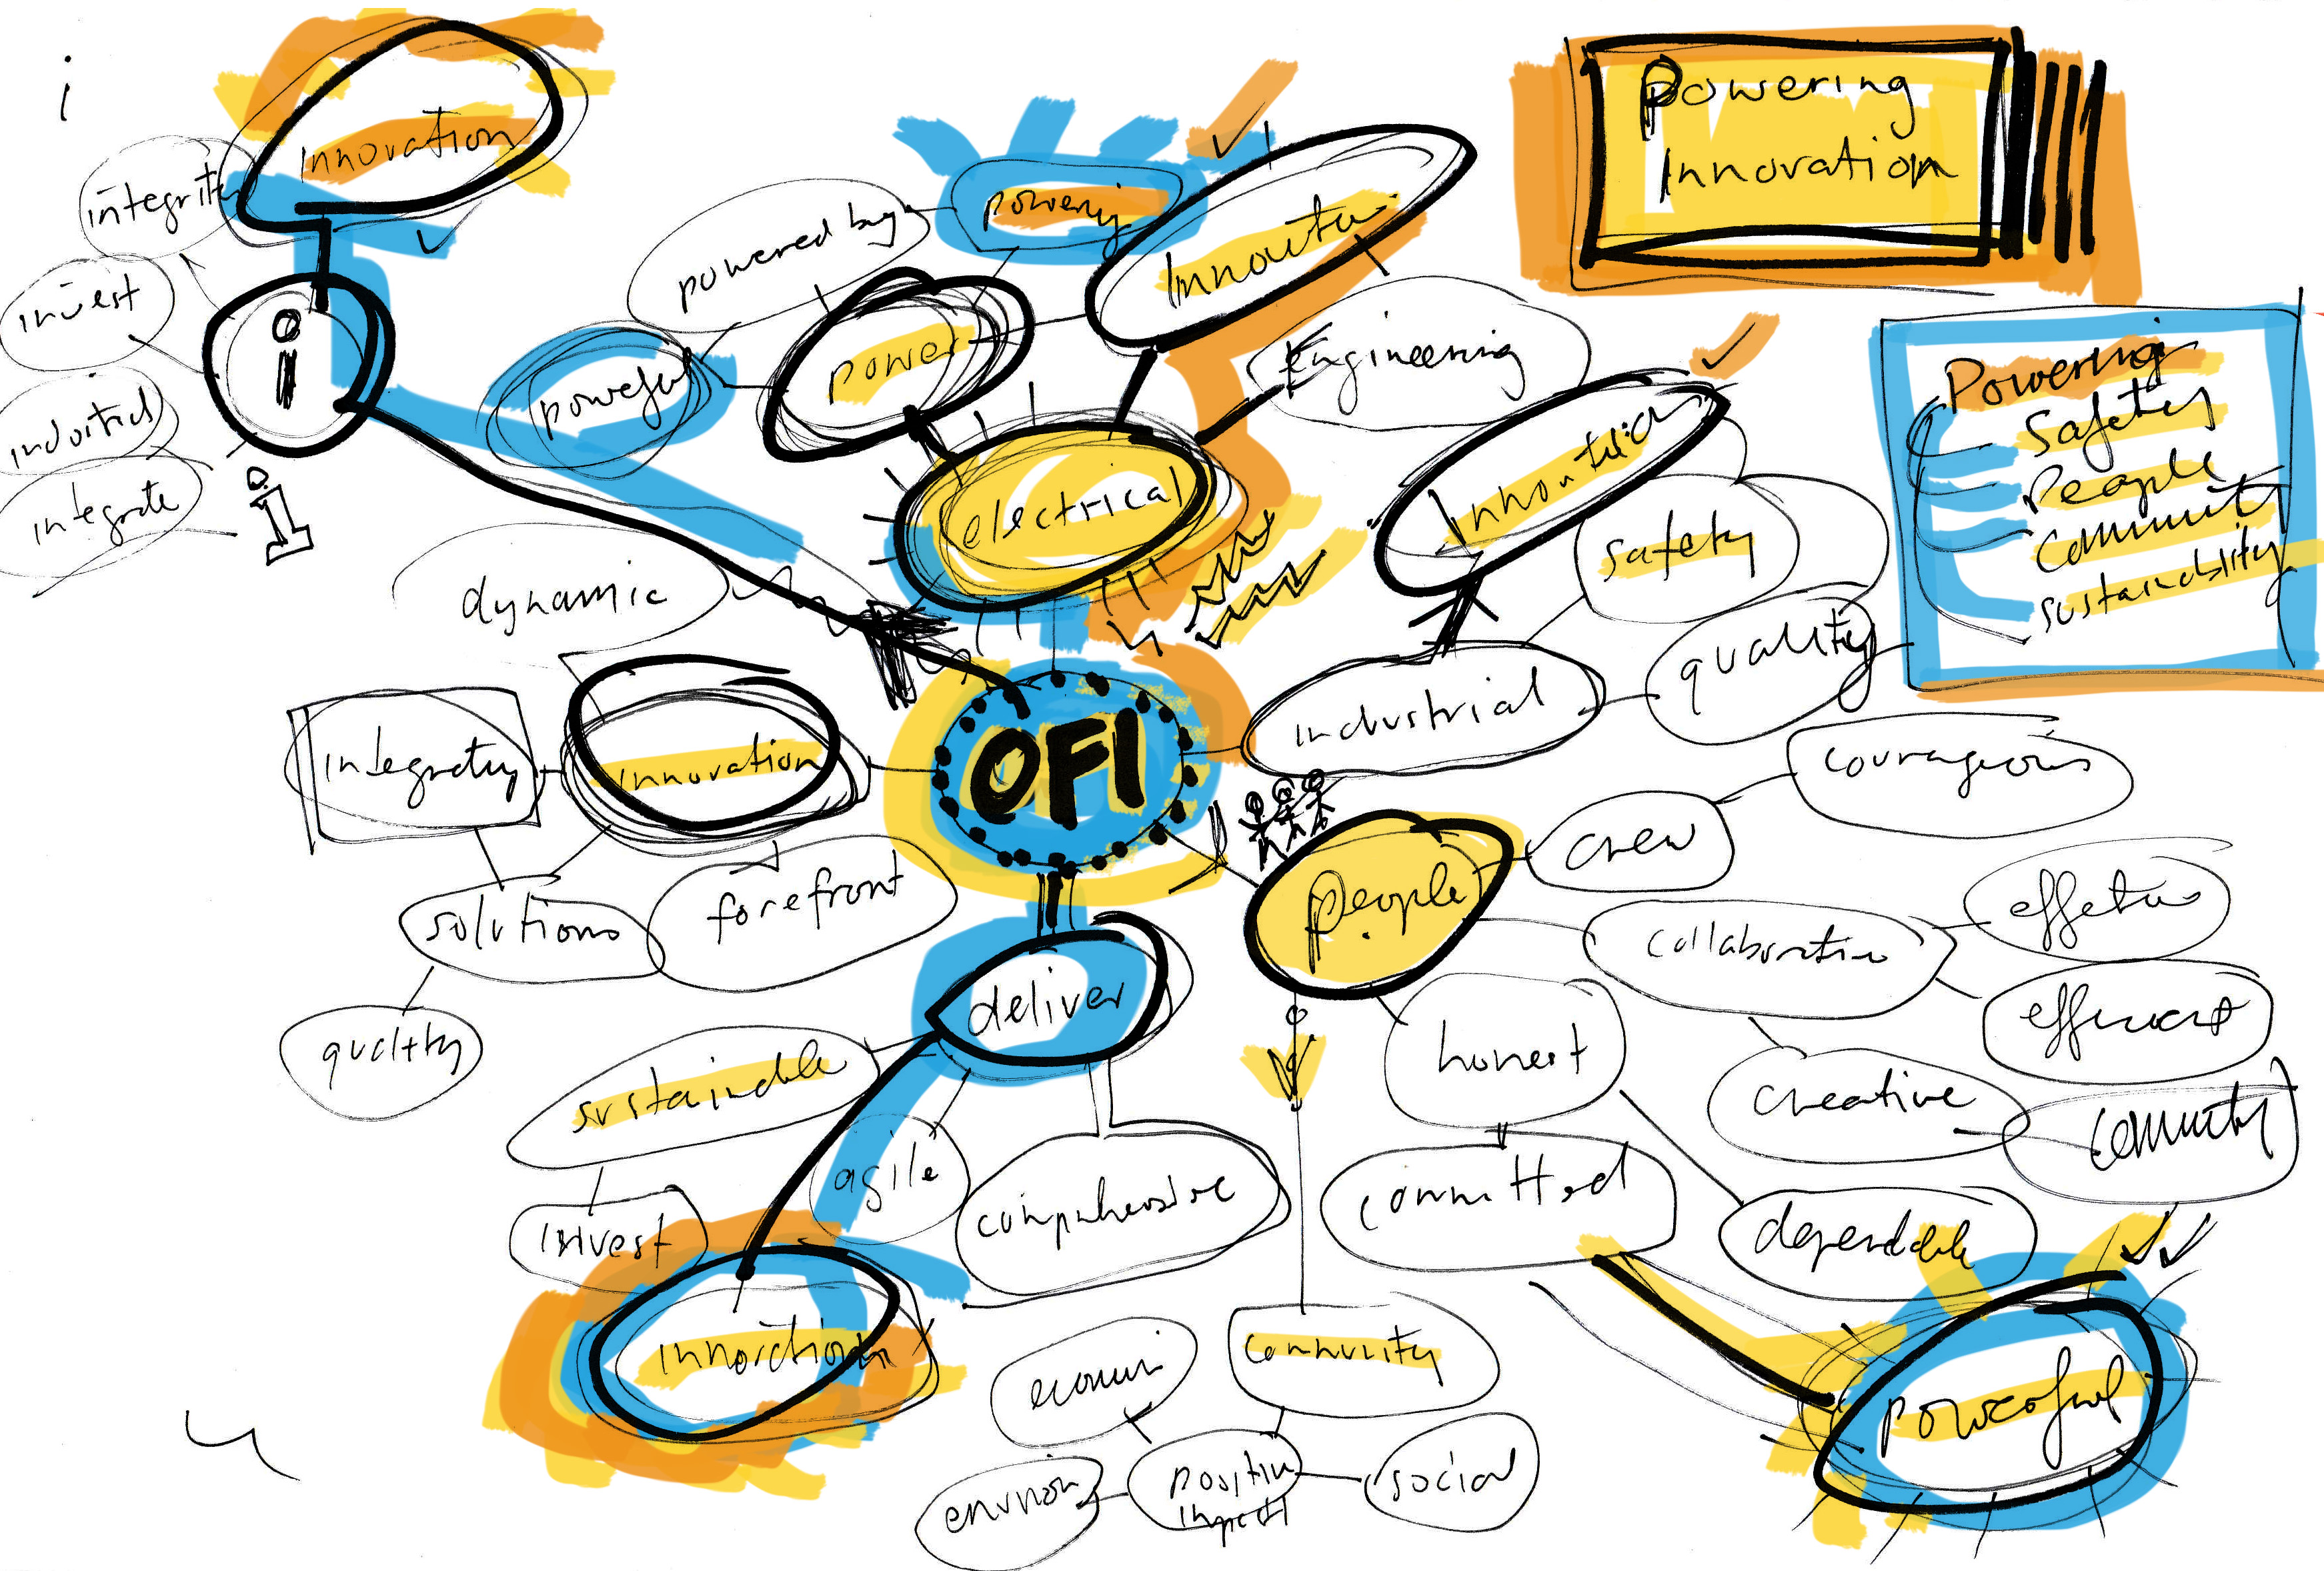 i
innovation
integrity
invest
industrial
integrate
i
i
powered by
powering
Powering
Innovation
powerful
power
Engineering
electrical
Innovation
Powering
Safety
People
community
sustainability
safety
quality
dynamic
industrial
integrity
innovation
OFI
courageous
crew
people
solutions
forefront
collaborative
effective
efficient
deliver
honest
creative
community
quality
sustainable
agile
comprehensive
committed
dependable
invest
innovation
community
powerful
positive
impact
social